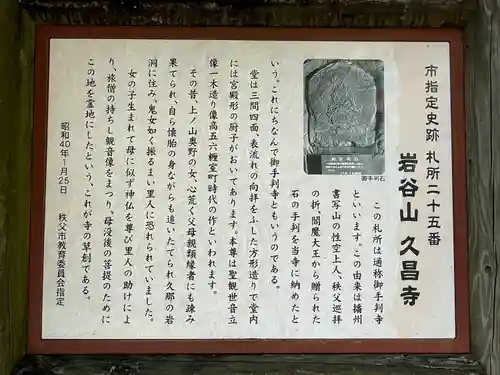 市指定史跡 札所二十五番
岩谷山 久昌寺
この札所は通称御手判寺
といいます。この由来は播州
書写山の性空上人、秩父巡拝
の折、閻魔大王から贈られた
石の手判を当寺に納めたと
いう。これにちなんで御手判寺ともいうのである。
堂は三間四面、表流れの向拝をふした方形造りで堂内
には宮殿形の厨子がおいてあります。本尊は聖観世音立
像一木造り像高五六糎室町時代の作といわれます。
その昔、上ノ山奥野の女、心荒く父母親類縁者にも疎み
果てられ、自ら懐胎の身ながらも追いたてられ久那の岩
洞に住み、鬼女如く振るまい里人に恐れられていました。
女の子生まれて母に似ず神仏を尊び里人の助けによ
り、旅僧の持ちし観音像をまつり、母没後の菩提のために
この地を霊地にしたという、これが寺の草創である。
昭和40年1月25日
秩父市教育委員会指定
御手判石